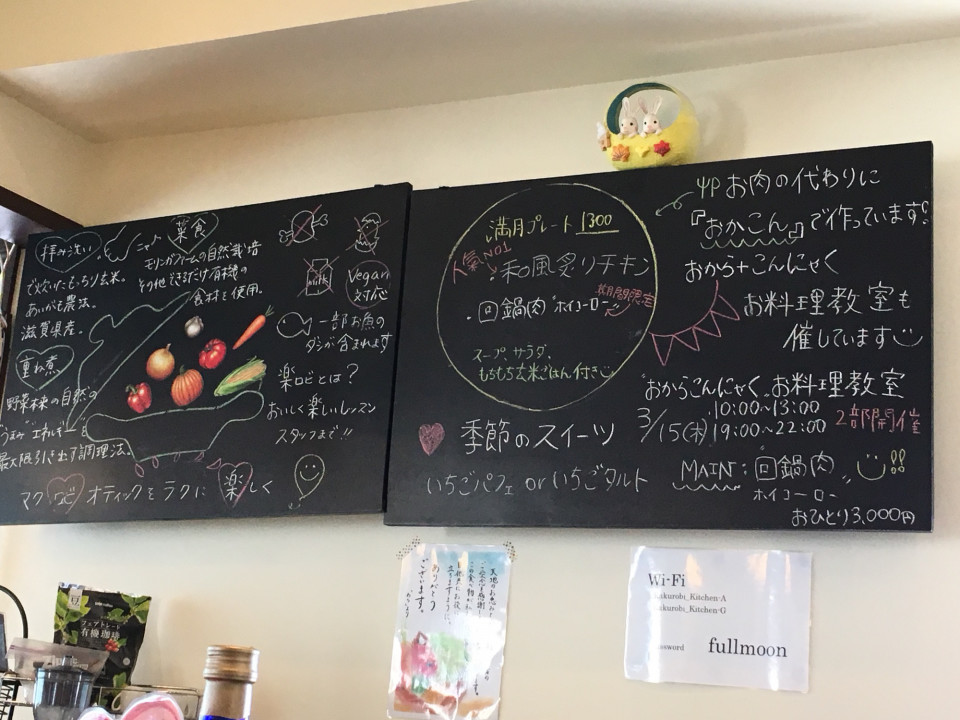 拝み洗い
で炊いたもっちり玄米。
あいがも農法。
滋賀県産。
重ね煮
野菜本来の自然の
"うまみ" "エネルギー"を
最大限引き出す調理法。
菜食
モリンガファームの自然栽培
その他できるだけ有機の
食材を使用。
milk
Vegan
対応
一部お魚の
ダシが含まれます
楽ロビとは?
おいしく楽しいレッスン
スタッフまで!!
マクロビオティックをラクに楽しく
満月プレート 1300
人気NO1
和風炙りチキン
・回鍋肉 ホイコーロー
期間限定
スープ、サラダ、
もちもち玄米ごはん付き
季節のスイーツ
いちごパフェ or いちごタルト
お肉の代わりに
『おかこん』で作っています!
おから+こんにゃく
お料理教室も
催しています
おからこんにゃく お料理教室
3/15(木) 10:00~13:00
19:00~22:00
2部開催
MAIN:回鍋肉
ホイコーロー
おひとり3,000円
フェアトレード
有機珈琲
ありがとう
ございます。
Wi-Fi
akurobi_Kitchen-A
akurobi_Kitchen-G
ssword fullmoon